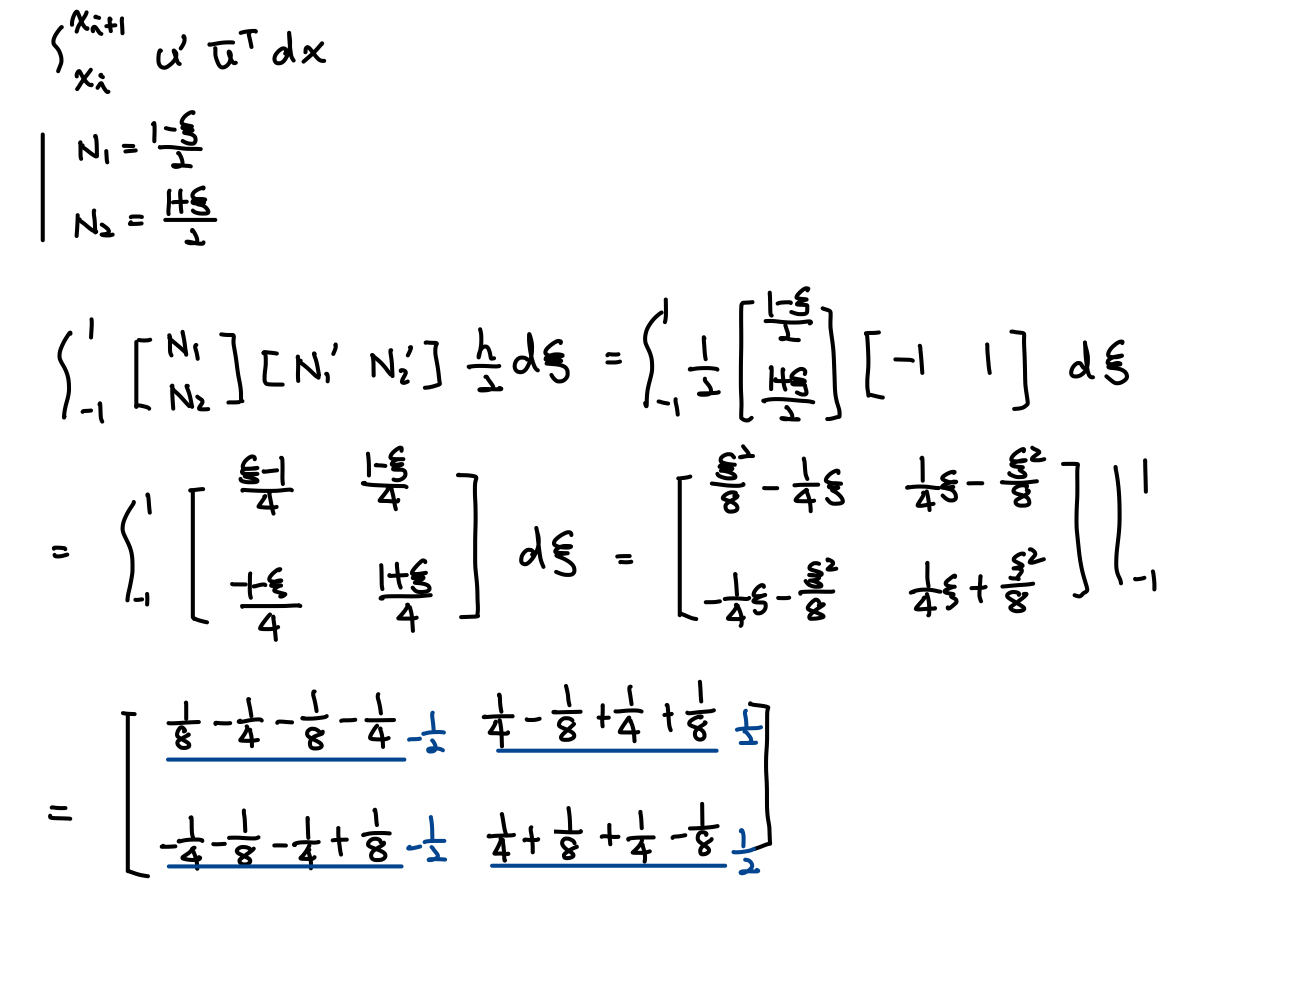 ∫_{x_i}^{x_{i+1}} u' ū^T dx
N₁ = (1-ξ)/2
N₂ = (1+ξ)/2
∫_{-1}^{1} [N₁; N₂] [N₁' N₂'] h/2 dξ = ∫_{-1}^{1} 1/2 [(1-ξ)/2; (1+ξ)/2] [-1 1] dξ
= ∫_{-1}^{1} [(ξ-1)/4 (1-ξ)/4; (-1-ξ)/4 (1+ξ)/4] dξ = [ξ²/8 - 1/4 ξ 1/4 ξ - ξ²/8; -1/4 ξ - ξ²/8 1/4 ξ + ξ²/8] |_{-1}^{1}
= [1/8 - 1/4 - 1/8 - 1/4 -1/2 1/4 - 1/8 + 1/4 + 1/8 1/2; -1/4 - 1/8 - 1/4 + 1/8 -1/2 1/4 + 1/8 + 1/4 - 1/8 1/2]